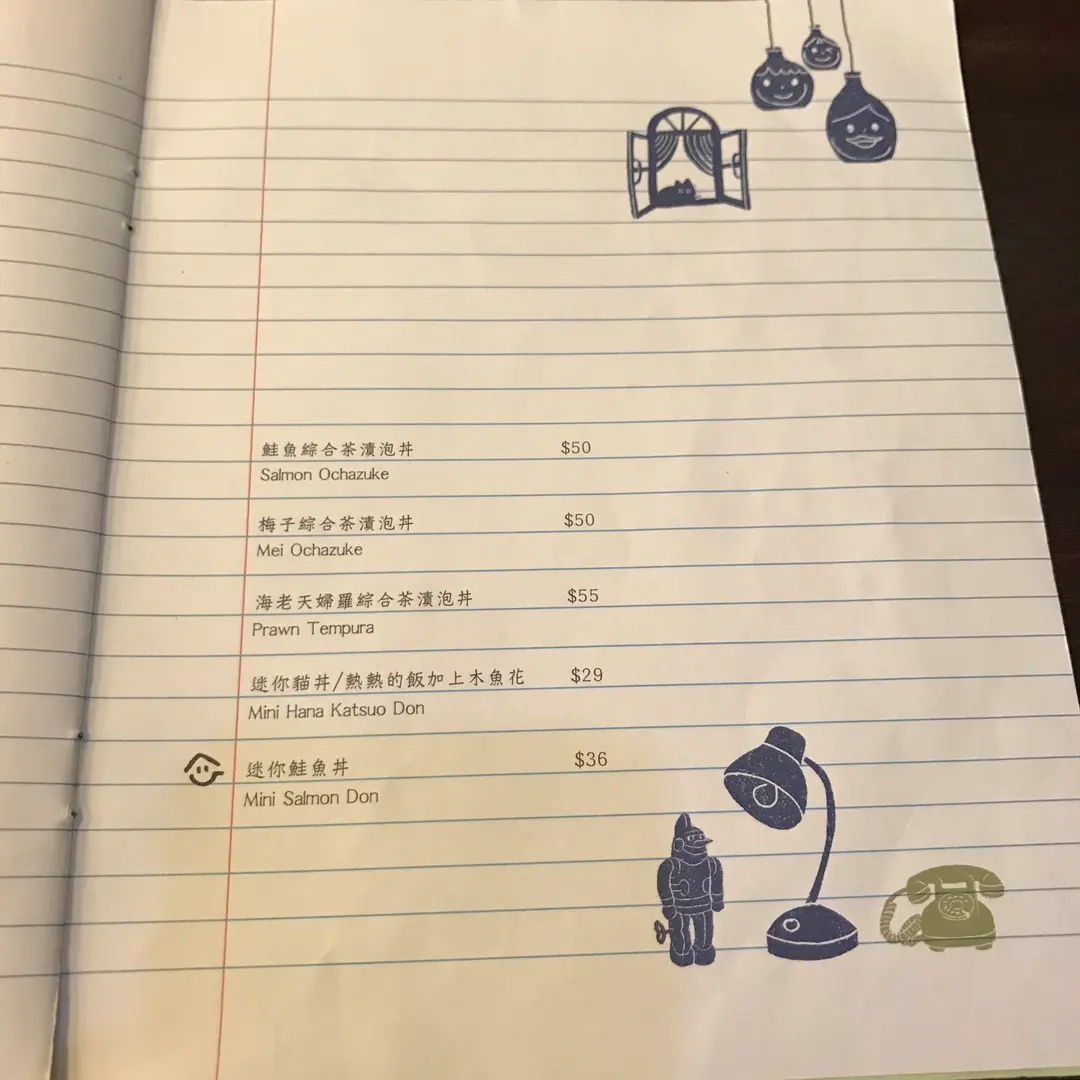 鮭魚綜合茶漬泡丼 $50
Salmon Ochazuke
梅子綜合茶漬泡丼 $50
Mei Ochazuke
海老天婦羅綜合茶漬泡丼 $55
Prawn Tempura
迷你貓丼/熱熱的飯加上木魚花 $29
Mini Hana Katsuo Don
迷你鮭魚丼 $36
Mini Salmon Don